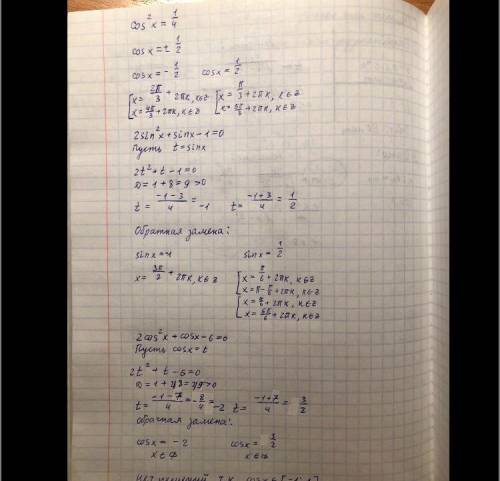 cos²x = 1/4
cosx = ± 1/2
cosx = - 1/2   cosx = 1/2
[x = 2π/3 + 2πk, k∈Z   [x = π/3 + 2πk, k∈Z
[x = 4π/3 + 2πk, k∈Z   [x = 5π/3 + 2πk, k∈Z
2sin²x + sinx - 1 = 0
Пусть t = sinx
2t² + t - 1 = 0
D = 1 + 8 = 9 > 0
t = (-1-3)/4 = -1   t = (-1+3)/4 = 1/2
Обратная замена:
sinx = -1   sinx = 1/2
x = 3π/2 + 2πk, k∈Z   [x = π/6 + 2πk, k∈Z
[x = π - π/6 + 2πk, k∈Z
[x = π/6 + 2πk, k∈Z
[x = 5π/6 + 2πk, k∈Z
2cos²x + cosx - 6 = 0
Пусть cosx = t
2t² + t - 6 = 0
D = 1 + 48 = 49 > 0
t = (-1-7)/4 = -8/4 = -2   t = (-1+7)/4 = 3/2
обратная замена:
cosx = -2   cosx = 3/2
x∈Ф   x∈Ф
нет решений, т.к. cosx∈[-1; 1]